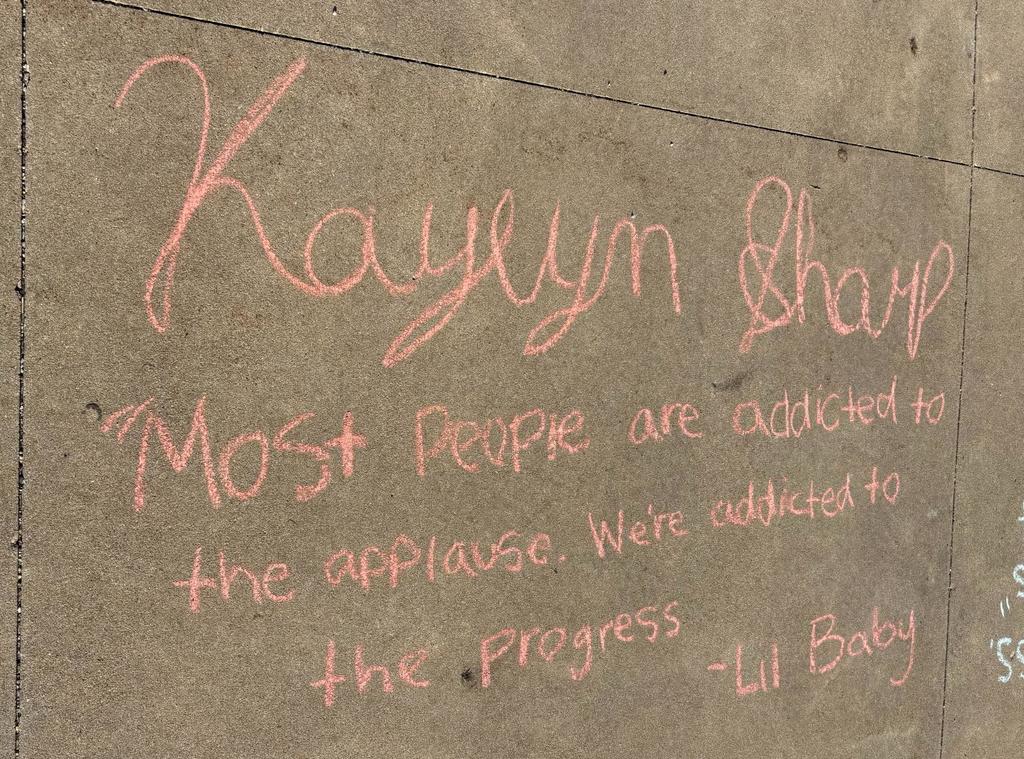 Kaylyn Sharp
"Most People are addicted to
the applause. We're addicted to
the progress
-Lil Baby